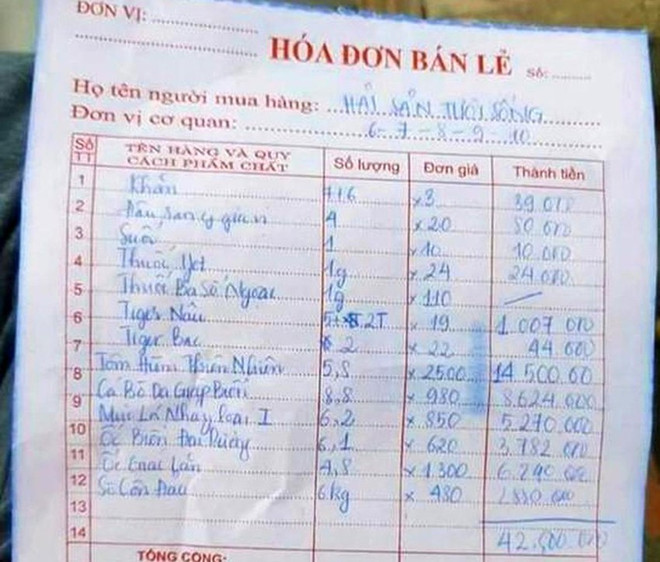 ĐƠN VỊ: ....................
HÓA ĐƠN BÁN LẺ Số: ..........
Họ tên người mua hàng: HẢI SẢN TƯƠI SỐNG
Đơn vị cơ quan: 6-7-8-9-10
Số TT TÊN HÀNG VÀ QUY CÁCH PHẨM CHẤT Số lượng Đơn giá Thành tiền
1 Khăn x 3 39.000
2 Đậu 4 x 20 80.000
3 Suối 1 x 10 10.000
4 Thuốc Jet 1g x 24 24.000
5 Thuốc Ba Số Ngoại 1g x 110
6 Tiger Nâu x 19 1.007.000
7 Tiger Bạc 2 x 22 44.000
8 Tôm Hùm Thiên Nhiên 5,8 x 2500 14.500.00
9 Cá Bò Da Giáp Biển 8,8 x 980 8.624.000
Mực Lá Nháy loại I 6,2 x 850 5.270.000
10 Ốc Biển Đại Dương 6,1 x 620 3.782.000
11 Ốc 4,8 x 1300 6.240.000
12 Sò Côn Đảo 6kg x 480 2.880.000
13
14 42.500.000
TỔNG CỘNG: